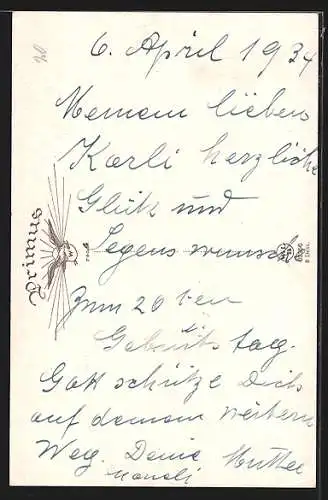 6. April 1934
Meinem lieben
Karli herzliche
Glük und
Segens wunsch
Zum 20 t-en
Geburts tag.
Gott schütze Dich
auf deinem weitern
Weg. Deine Mutter
Primus